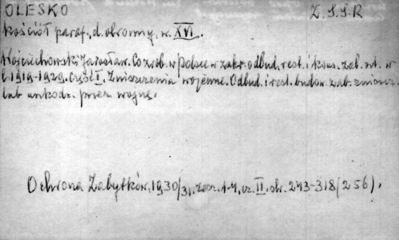 OLESKO Z.S.S.R
Kościół paraf. d. obronny, w. XVI.
Wojciechowski Jarosław. Co zrob. w Polsce w zakr. odbud. rest. i kons. zab. szt. w
l. 1919-1929. Część I. Zniszczenia wojenne. Odbud. i rest. budow. zab. zniszcz.
lub uszkodz. przez wojnę.
Ochrona Zabytków. 1930/31. zesz. 1-4, cz. II. str. 243-318 (256).